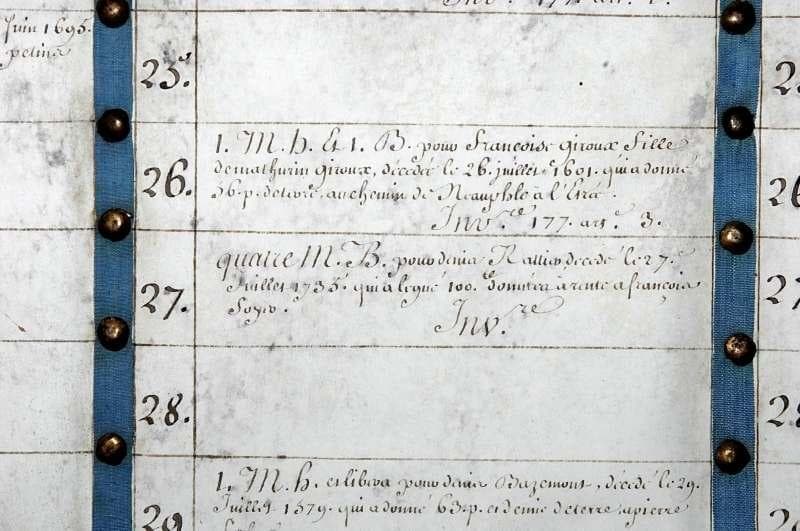 Juin 1695.
25.
26.
1. M. h. Et 1. B. pour francoise giroux fille
demathurin giroux, décédée le 26. juillet 1601. qui a donné
36. p. deterre, auchemin de Neauphle à l'Estre.
Inv.re 177. art.e 3.
27.
quatre M. B. pour denis Rattier decédé le 27.
Juillet 1735. qui a legué 100. donnéea arente a françois
Inv.re
28.
29
1. M. h. et libera pour denis Bazemont, décédé le 29.
Juillet 1579. qui a donné 63 p. et demie deterre, apierre